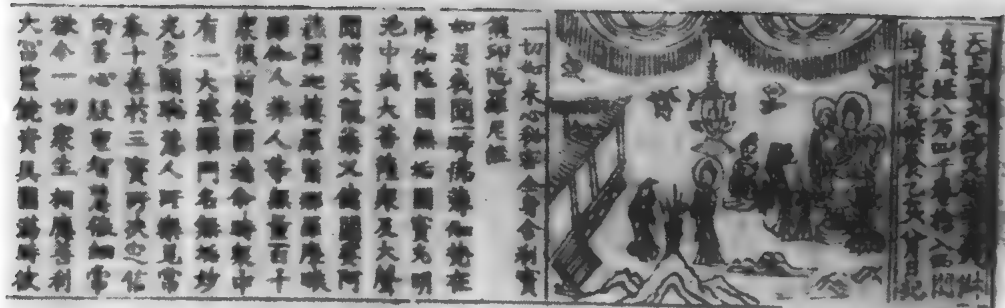 天下兵馬大元帥吳越國王錢俶
造此經八万四千卷捨入西關
塼塔永充供養乙亥八月日紀
一切如來心秘密全身舍利寶
篋印陀羅尼經
如是我聞一時佛薄伽梵在
摩伽陀國無垢園寶光明
池中與大菩薩衆及大聲
聞僧天龍藥叉健闥婆阿
蘇羅迦樓羅緊那羅摩睺
羅伽人非人等無量百千
衆俱前後圍繞尒時衆中
有一大婆羅門名無垢妙
光多聞聰慧人所樂見常
奉十善於三寶所决定信
向善心殷重智慧微細常
欲令一切衆生相應善利
大富豐饒資具圓滿時彼